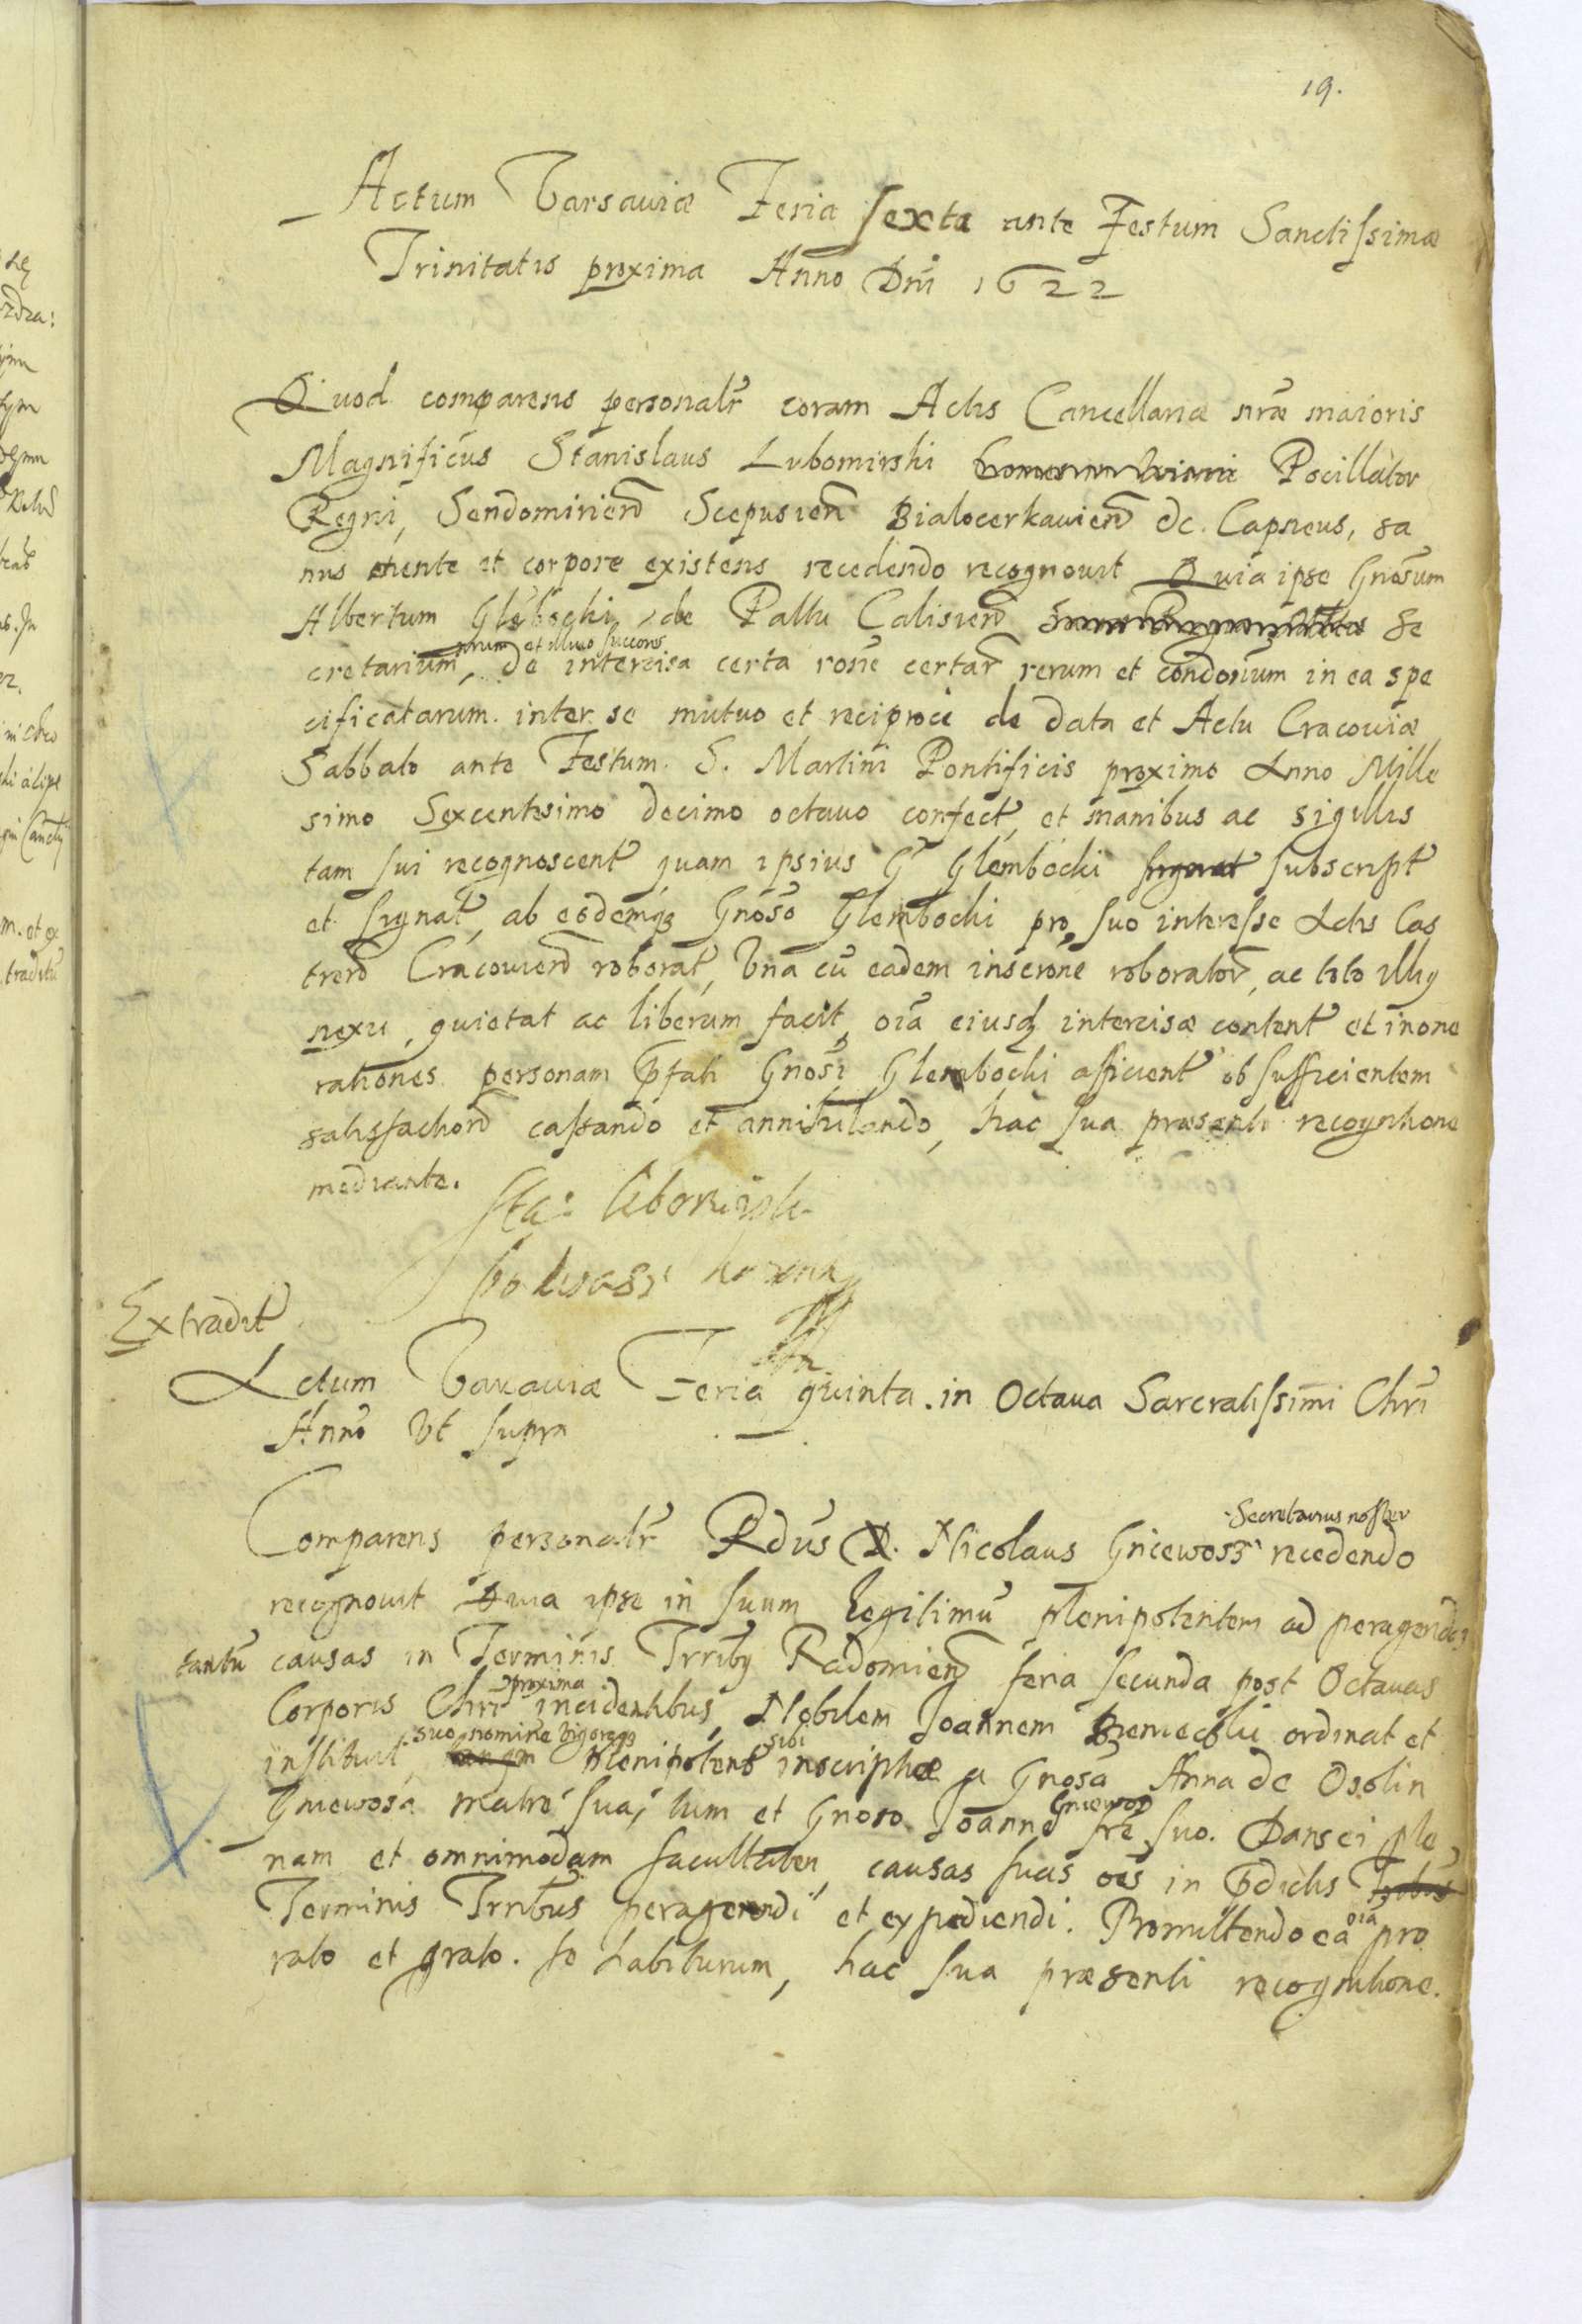 19.
Actum Varsaviæ Feria sexta ante Festum Sanctissimæ
Trinitatis proxima Anno Dni 1622
Quod comparens personalr coram Actis Cancellariæ nræ maioris
Magnificus Stanislaus Lubomirski Pocillator
Regni, Sendomirien Scepusien Bialocerkauien &c. Capneus, sa
nus mente et corpore existens recedendo recognouit Quia ipse Gnosum
Albertum Glębocki, de Pallu Calisien Se
nrum et illius succores
cretarium, de intercisa certa rone certar rerum et condonum in ea spe
cificatarum inter se mutuo et reciproce de data et Actu Cracouiæ
Sabbato ante Festum S. Martini Pontificis proximo Anno Mille
simo Sexcentesimo decimo octauo confect, et manibus ac sigillis
tam sui recognoscent quam ipsius G Glembocki signat subscript
et signat, ab eodemq Gnoso Glembocki pro suo interesse Actis Cas
tren Cracouien roborat, Vna cu eadem inscrone roborator, ac toto illig
nexu, quietat ac liberum facit, oia eiusq intercisæ content et inone
rationes personam pfati Gnosi Glembocki afficient ob sufficientem
satisfaction cassando et annihilando, hac sua præsenti recognitione
mediante.
Sta: lubomirski
Extradit
Actum Varsauiæ Feria quinta in Octaua Sarcratissimi Chri
Anno Vt supra
Secretarius noster
Comparens personalr Rdus D. Nicolaus Gniewosz recedendo
recognouit Quia ipse in suum legitimu plenipotentem ad peragendas
tantu causas in Terminis Trribg Radomien feria secunda post Octauas
proxima
Corporis Chri incidentibus, Nobilem Joannem ordinat et
suo nomine vigoreq sibi
instituit, plenipotent inscriptæ a Gnosa Anna de Osolin
Gniewosz
Gniewosa matre sua, tum et Gnoso Joanne fre suo. Dans ei ple
nam et omnimodam facultatem, causas suas oes in pdictis
Terminis Trribus peragendi et expediendi. Promittendo ea oia pro
rato et grato se habiturum, hac sua præsenti recognitione.